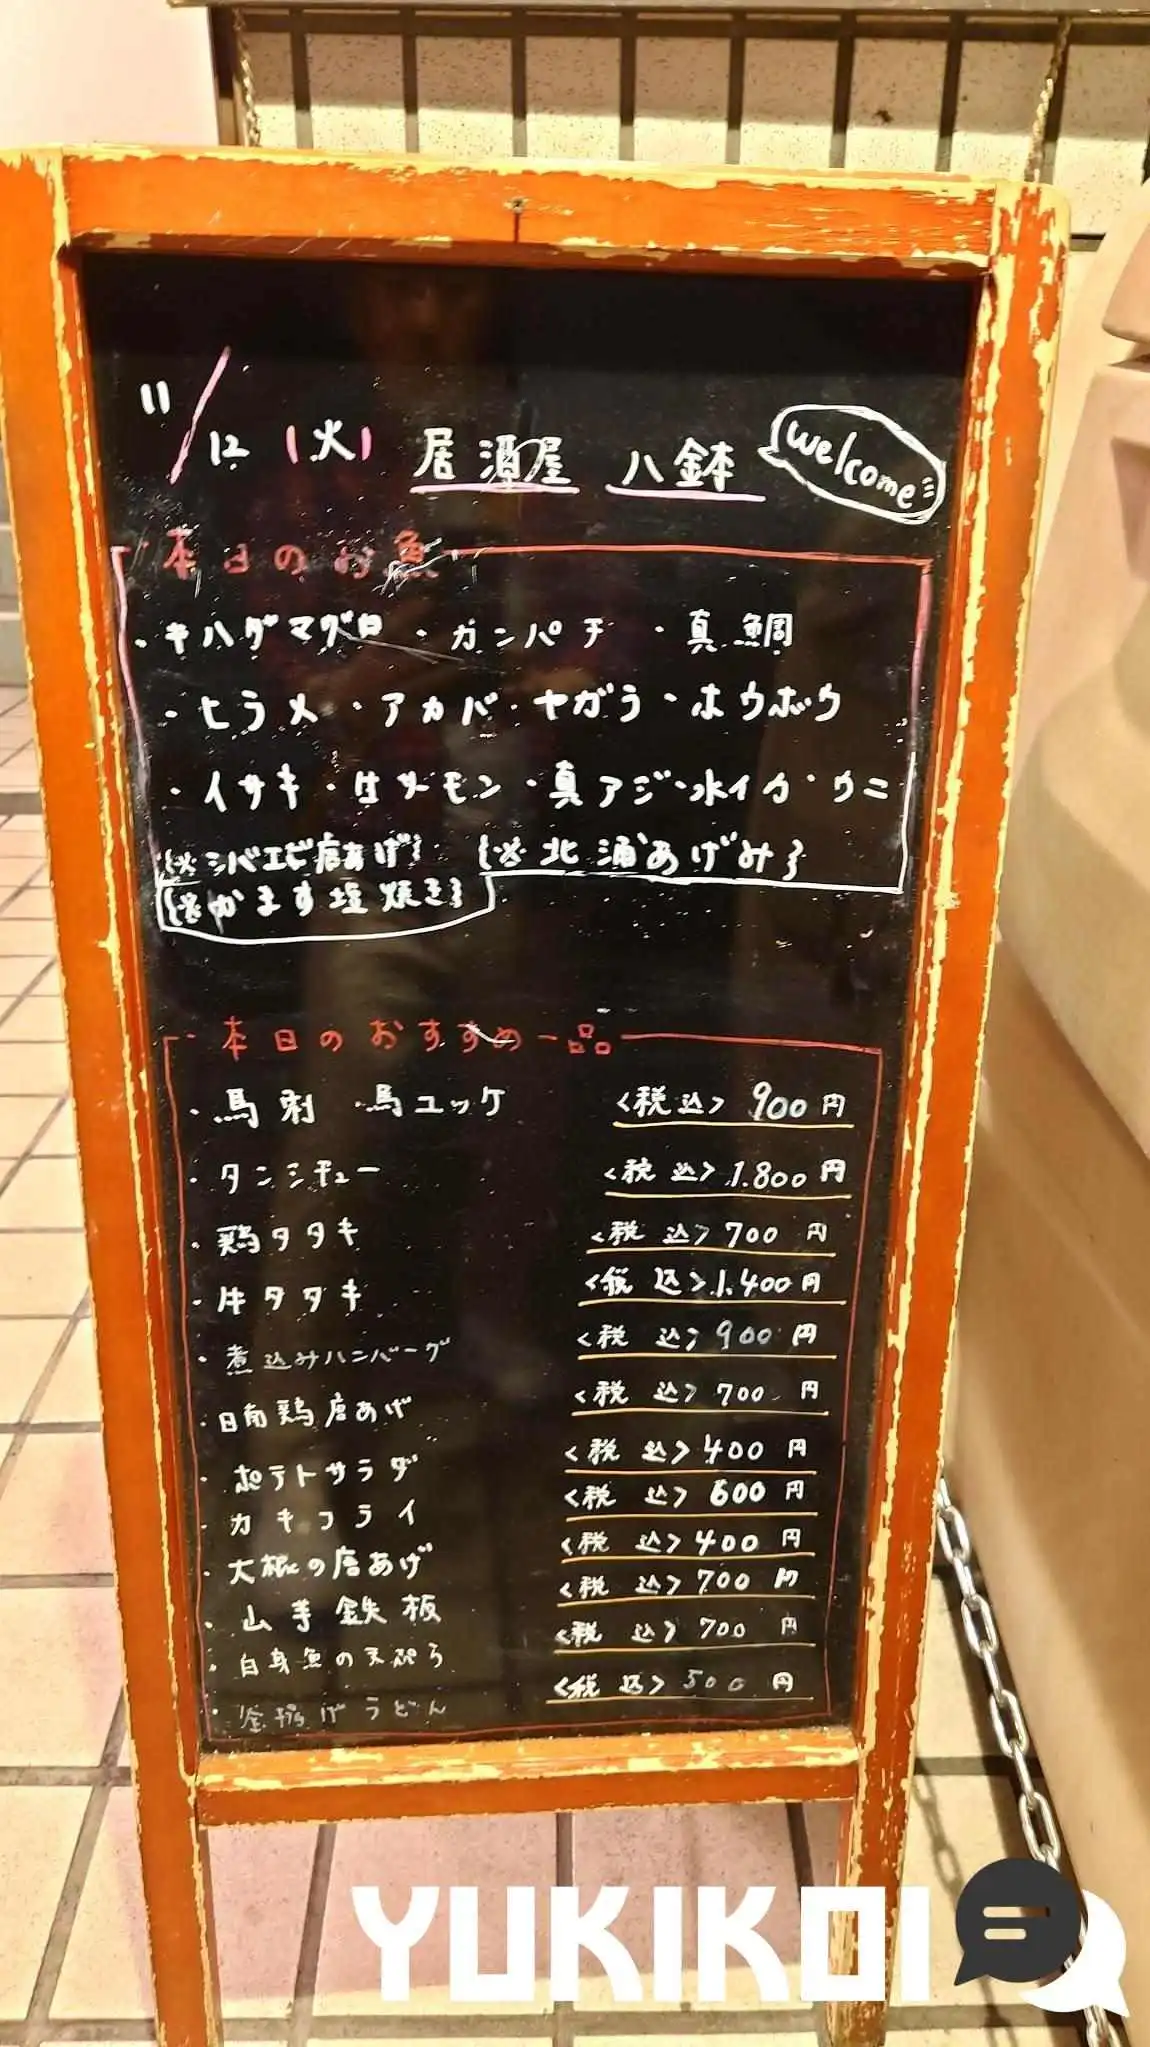 11/12(火) 居酒屋 八鉢 welcome
本日のお魚
・キハダマグロ ・カンパチ ・真鯛
・ヒラメ ・アカバ・ヤガラ・ホウボウ
・イサキ・生サーモン・真アジ・水イカ・ウニ
{※シバエビ唐あげ} {※北浦あげみ}
{※かます塩焼き}
本日のおすすめ一品
・馬刺 ・馬ユッケ <税込> 900円
・タンシチュー <税込> 1.800円
・鶏タタキ <税込> 700円
・牛タタキ <税込> 1.400円
・煮込みハンバーグ <税込> 900円
・日南鶏唐あげ <税込> 700円
・ポテトサラダ <税込> 400円
・カキフライ <税込> 600円
・大根の唐あげ <税込> 400円
・山芋鉄板 <税込> 700円
・白身魚の天ぷら <税込> 700円
・釜揚げうどん <税込> 500円
YUKIKOI